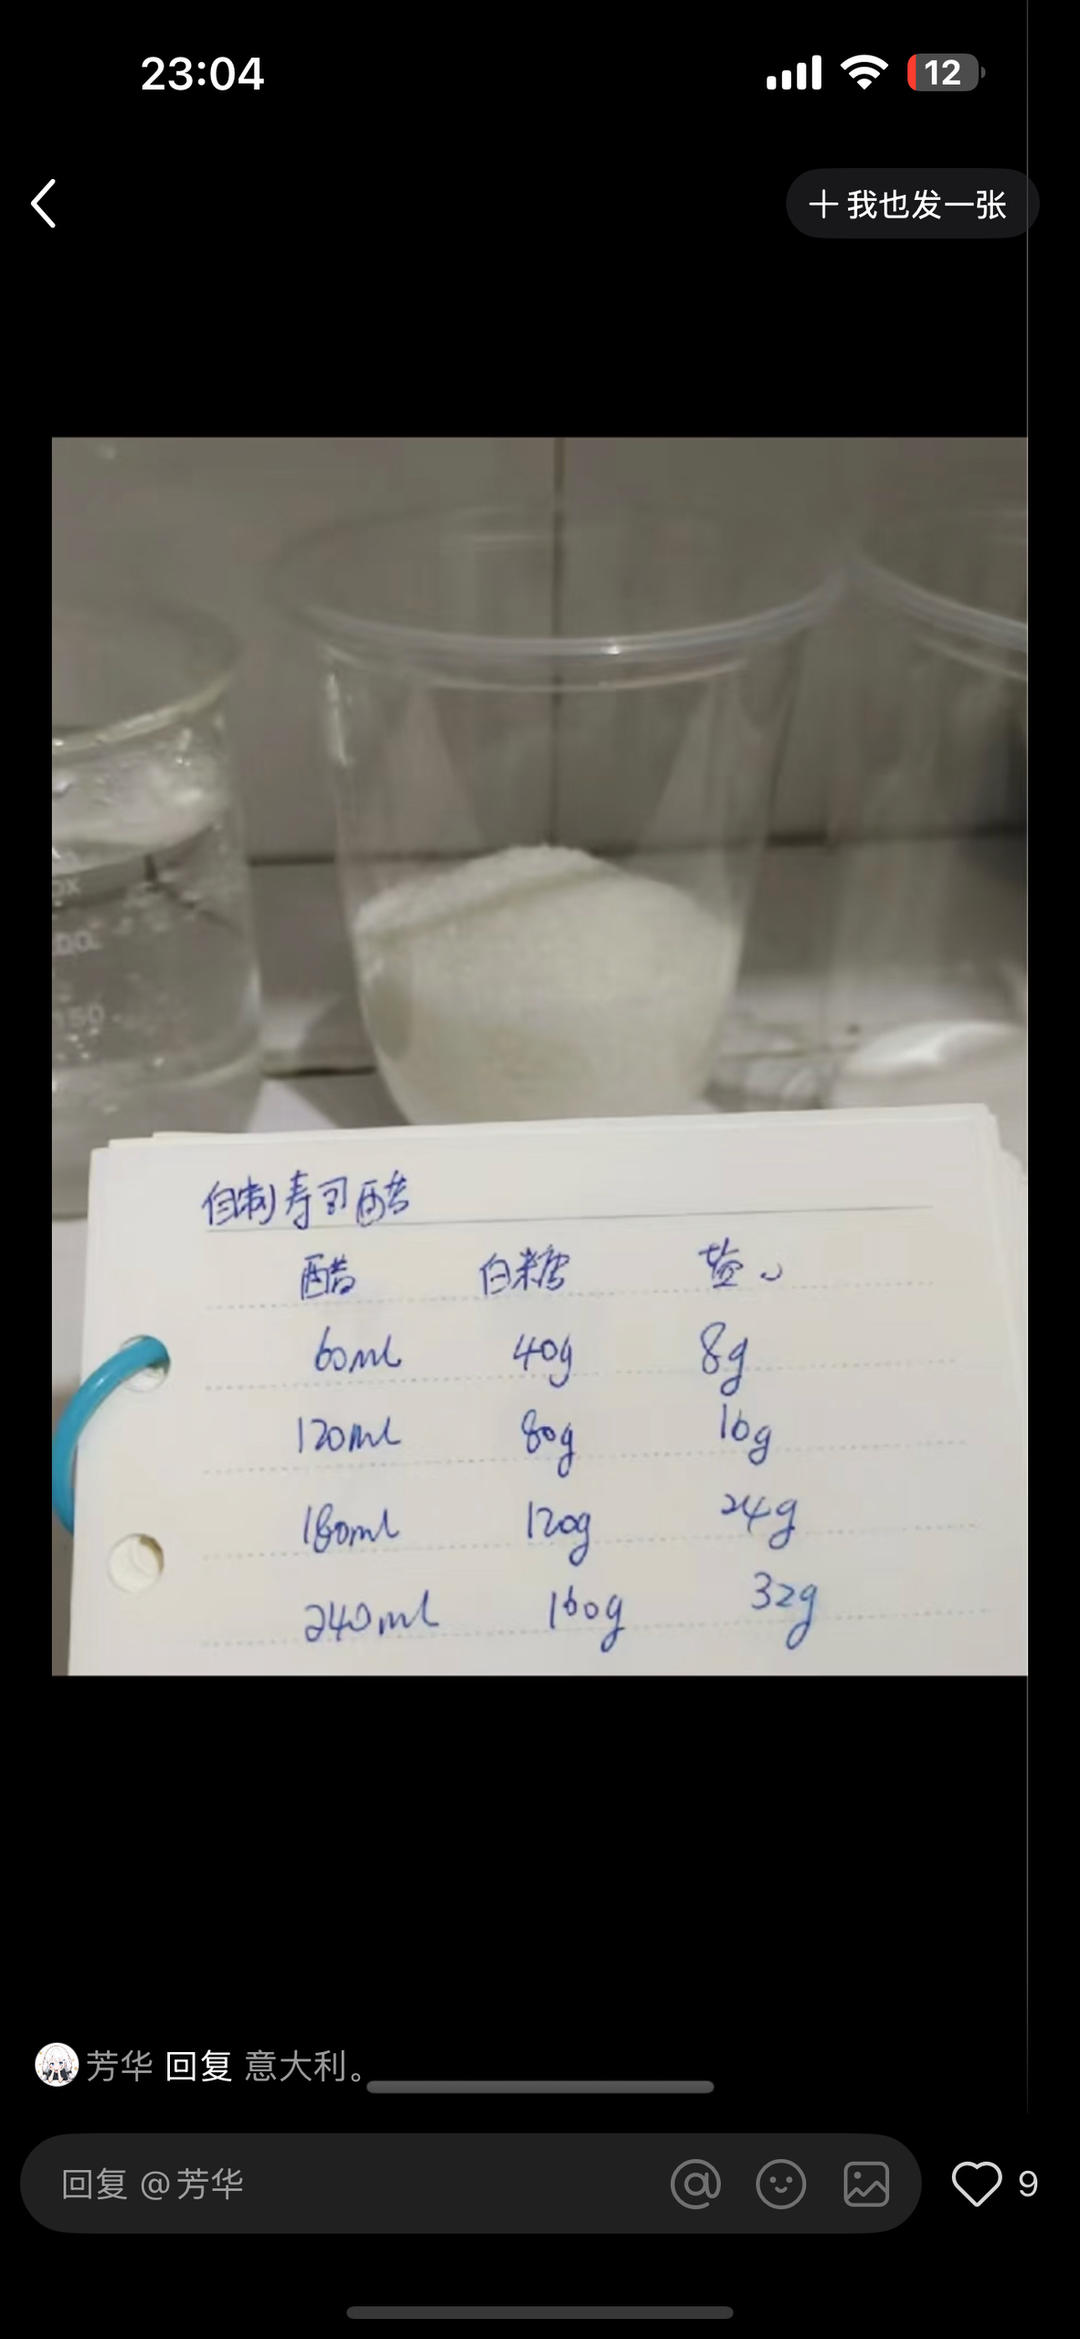 23:04
12
+ 我也发一张
00
150
自制寿司醋
醋 白糖 盐。
60ml 40g 8g
120ml 80g 16g
180ml 120g 24g
240ml 160g 32g
芳华 回复 意大利。
回复 @芳华
9